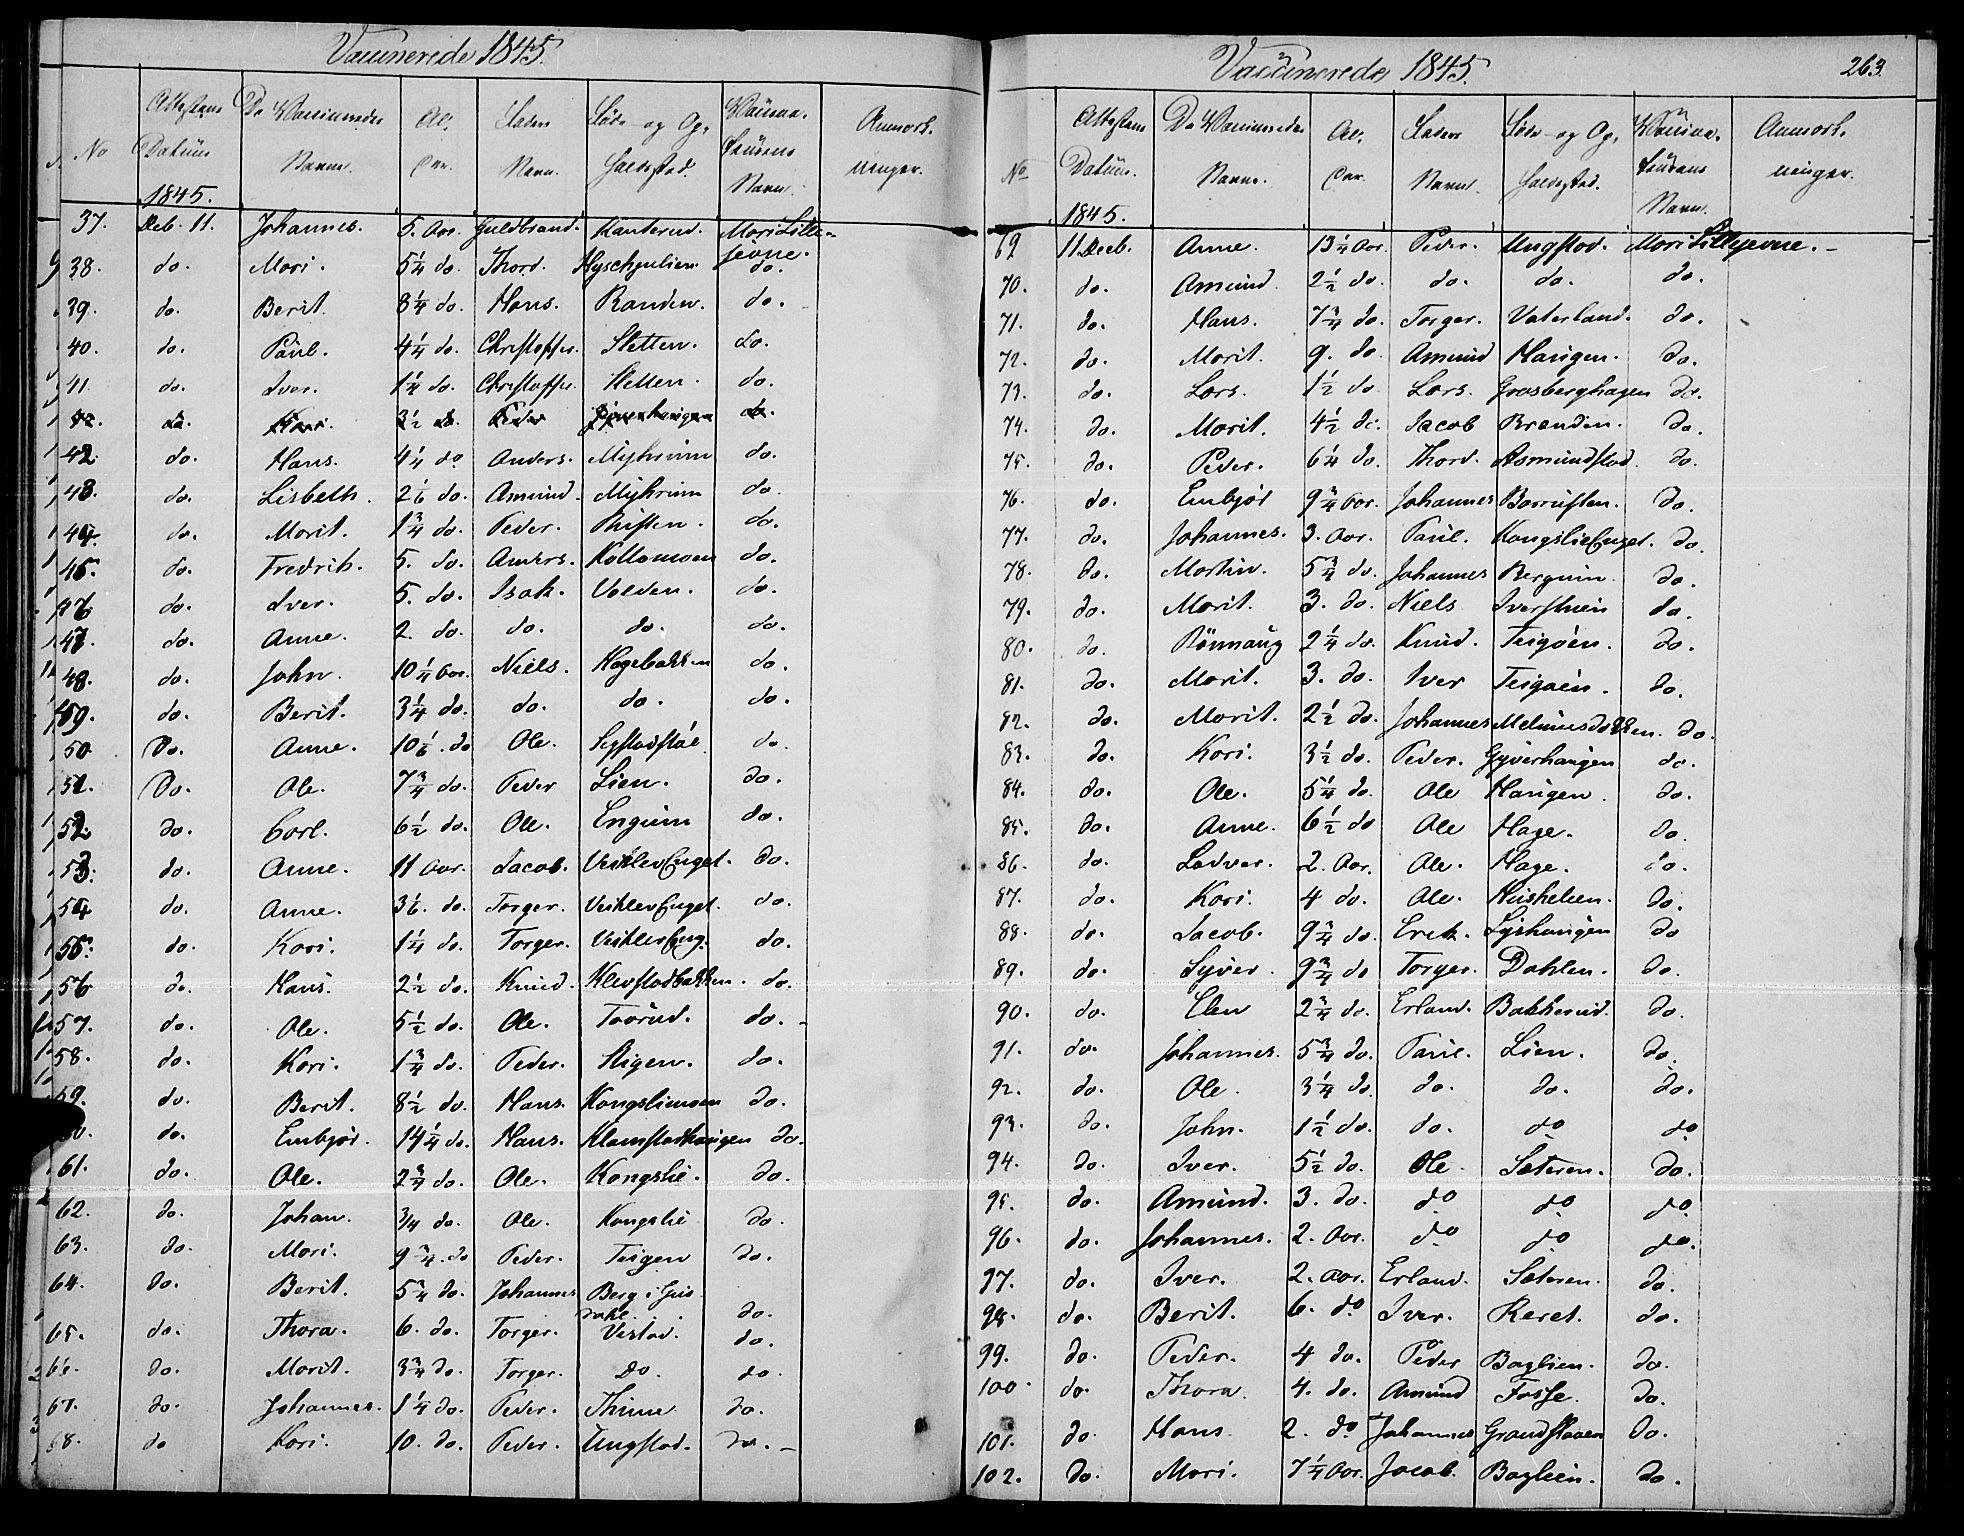 Vaccinerede 1845.
No Attestens Datum 1845. De Vaccineredes Navn. Al- der. Faders Navn. Føde- og Op- holdssted. Vaccina- teurens Navn. Anmærk- ninger.
37. Deb. 11. Johannes. 5. Aar. Guldbrand. Kanterud. Mari Lille-
jevne.
38. do. Mari. 5 1/4 do. Thord. do.
39. do. Berit. 8 1/4 do. Hans. Randen. do.
40. do. Paul. 4 1/4 do. Christoffer. Sletten. do.
41. do. Iver. 1 1/4 do. Christoffer. Sletten. do.
do. Kari. 3 1/2 do. Peder do.
42. do. Hans. 4 1/4 do Anders. Myhrum do.
43. do. Lisbeth. 2 1/6 do. Amund. Myhrum do.
44. do. Marit. 1 3/4 do. Peder. do.
45. do. Fredrik. 5. do. Anders. Kollomoen do.
46 do. Iver. 5. do. Isak. Volden. do.
47. do. Anne. 2. do. do. do. do.
48. do. John. 10 1/4 Aar. Niels. Hagebakken do.
49. do. Berit. 3 1/4 do. do. do. do.
50 Do. Anne. 10 1/6. do Ole. do.
51. Do. Ole. 7 3/4 do. Peder Lien. do.
52. do. Carl. 6 1/2 do. Ole. Engum do.
53. do. Anne. 11 Aar. Jacob. VeiklevEnget. do.
54 do. Anne. 3 1/6. do. Torger. VeiklevEnget. do.
55. do. Kari. 1 1/4 do. Torger. VeiklevEng. do.
56 do. Hans. 2 1/2 do. Knud. Klevstadbakken. do.
57. do. Ole. 5 1/2 do. Ole. Toorud. do. -
58. do. Kari. 1 3/4 do. Peder. Stigen. do.
59. do. Berit. 8 1/2 do. Hans. Kongsliemoen do.
60. do. Embjør. 14 1/4 do. Hans. Klomstadhaugen do.
61. do. Ole. 2 3/4 do. Ole. Kongslie. do.
62. do. Johan. 3/4 do. Ole. Kongslie do.
63. do. Mari. 9 3/4. do Peder. Teigen do.
64. do. Berit. 5 3/4 do. Johannes Berg i Gus
dahl. do.
65. do. Thora. 6. do. Torger. Vistad. do.
66. do. Marit. 3 3/4 do. Torger. Do. do
67. do. Johannes. 1 1/4 do. Peder. Thune do.
68. do Kari. 10. do. Peder. Ungstad. do. -
Vaccinerede 1845. 263.
No Attestens Datum. 1845. De Vaccineredes Navn. Al- der. Faders Navn. Føde- og Op- holdssted. Vaccina- teurens Navn. Anmærk- ninger.
69 11 Deeb. Anne. 13 1/4 Aar. Peder. Ungstad. Mari Lillejevne. -
70. do. Amund. 2 1/2 do. do. do. do.
71. do. Hans. 7 3/4 do. Torger. Vaterland. do.
72. do. Marit. 9. do Amund Haugen. do.
73. do. Lars. 1 1/2 do Lars. Grosberghagen do.
74. do. Marit. 4 1/2 do. Jacob Branden. do.
75. do. Peder. 6 1/4 do. Thord. Asmundstad. do.
76. do. Embjør 9 3/4 Aar. Johannes Borrusten. do.
77. do. Johannes. 3. Aar. Paul. KongslieEnget. do.
78. do. Martin. 5 3/4 do. Johannes Bergum. do.
79. do. Marit. 3. do. Niels Iverstuen do.
80. do. Rønnaug 2 1/4 do. Knud. Teigøen. do.
81. do. Marit. 3. do. Iver Teigøen. do.
82. do. Marit. 2 1/2 do. Johannes Melumsdokken. do.
83. do. Kari. 3 1/2 do. Peder. Gyverhaugen do.
84. do. Ole. 5 1/4 do. Ole Haugen. do.
85. do. Anne. 6 1/2 do Ole Hage. do.
86. do. Ladver. 2. Aar. Ole. Hage. do.
87. do. Kari. 4 do. Ole. Huskelien. do.
88. do. Jacob. 9 3/4 do. Erik. Lyshaugen do
89. do. Syver. 9 3/4 do Torger. Dahlen. do.
90. do. Elen 2 3/4 do. Erland. Bakkerud. do.
91. do. Johannes. 5 3/4 do. Paul. Lien. do.
92. do. Ole. 3 1/4 do. do. do. do.
93. do. John. 1 1/2 do. do. do do
94. do. Iver. 5 1/2 do. Ole. Sæteren. do.
95. do. Amund. 3. do. do do do.
96. do. Johannes. 2. Aar. do do do.
97. do. Iver. 2. Aar. Erland. Sæteren. do.
98. do. Berit. 6. do Iver. Reret. do.
99. do. Peder. 4 do. Peder Baglien. do.
100. do. Thora. 4. do. Amund Fosse. do.
101. do. Hans 2. do Johannes Grandstaaen do.
102. do. Mari. 7 1/4 Aar. Jacob. Baglien. do.